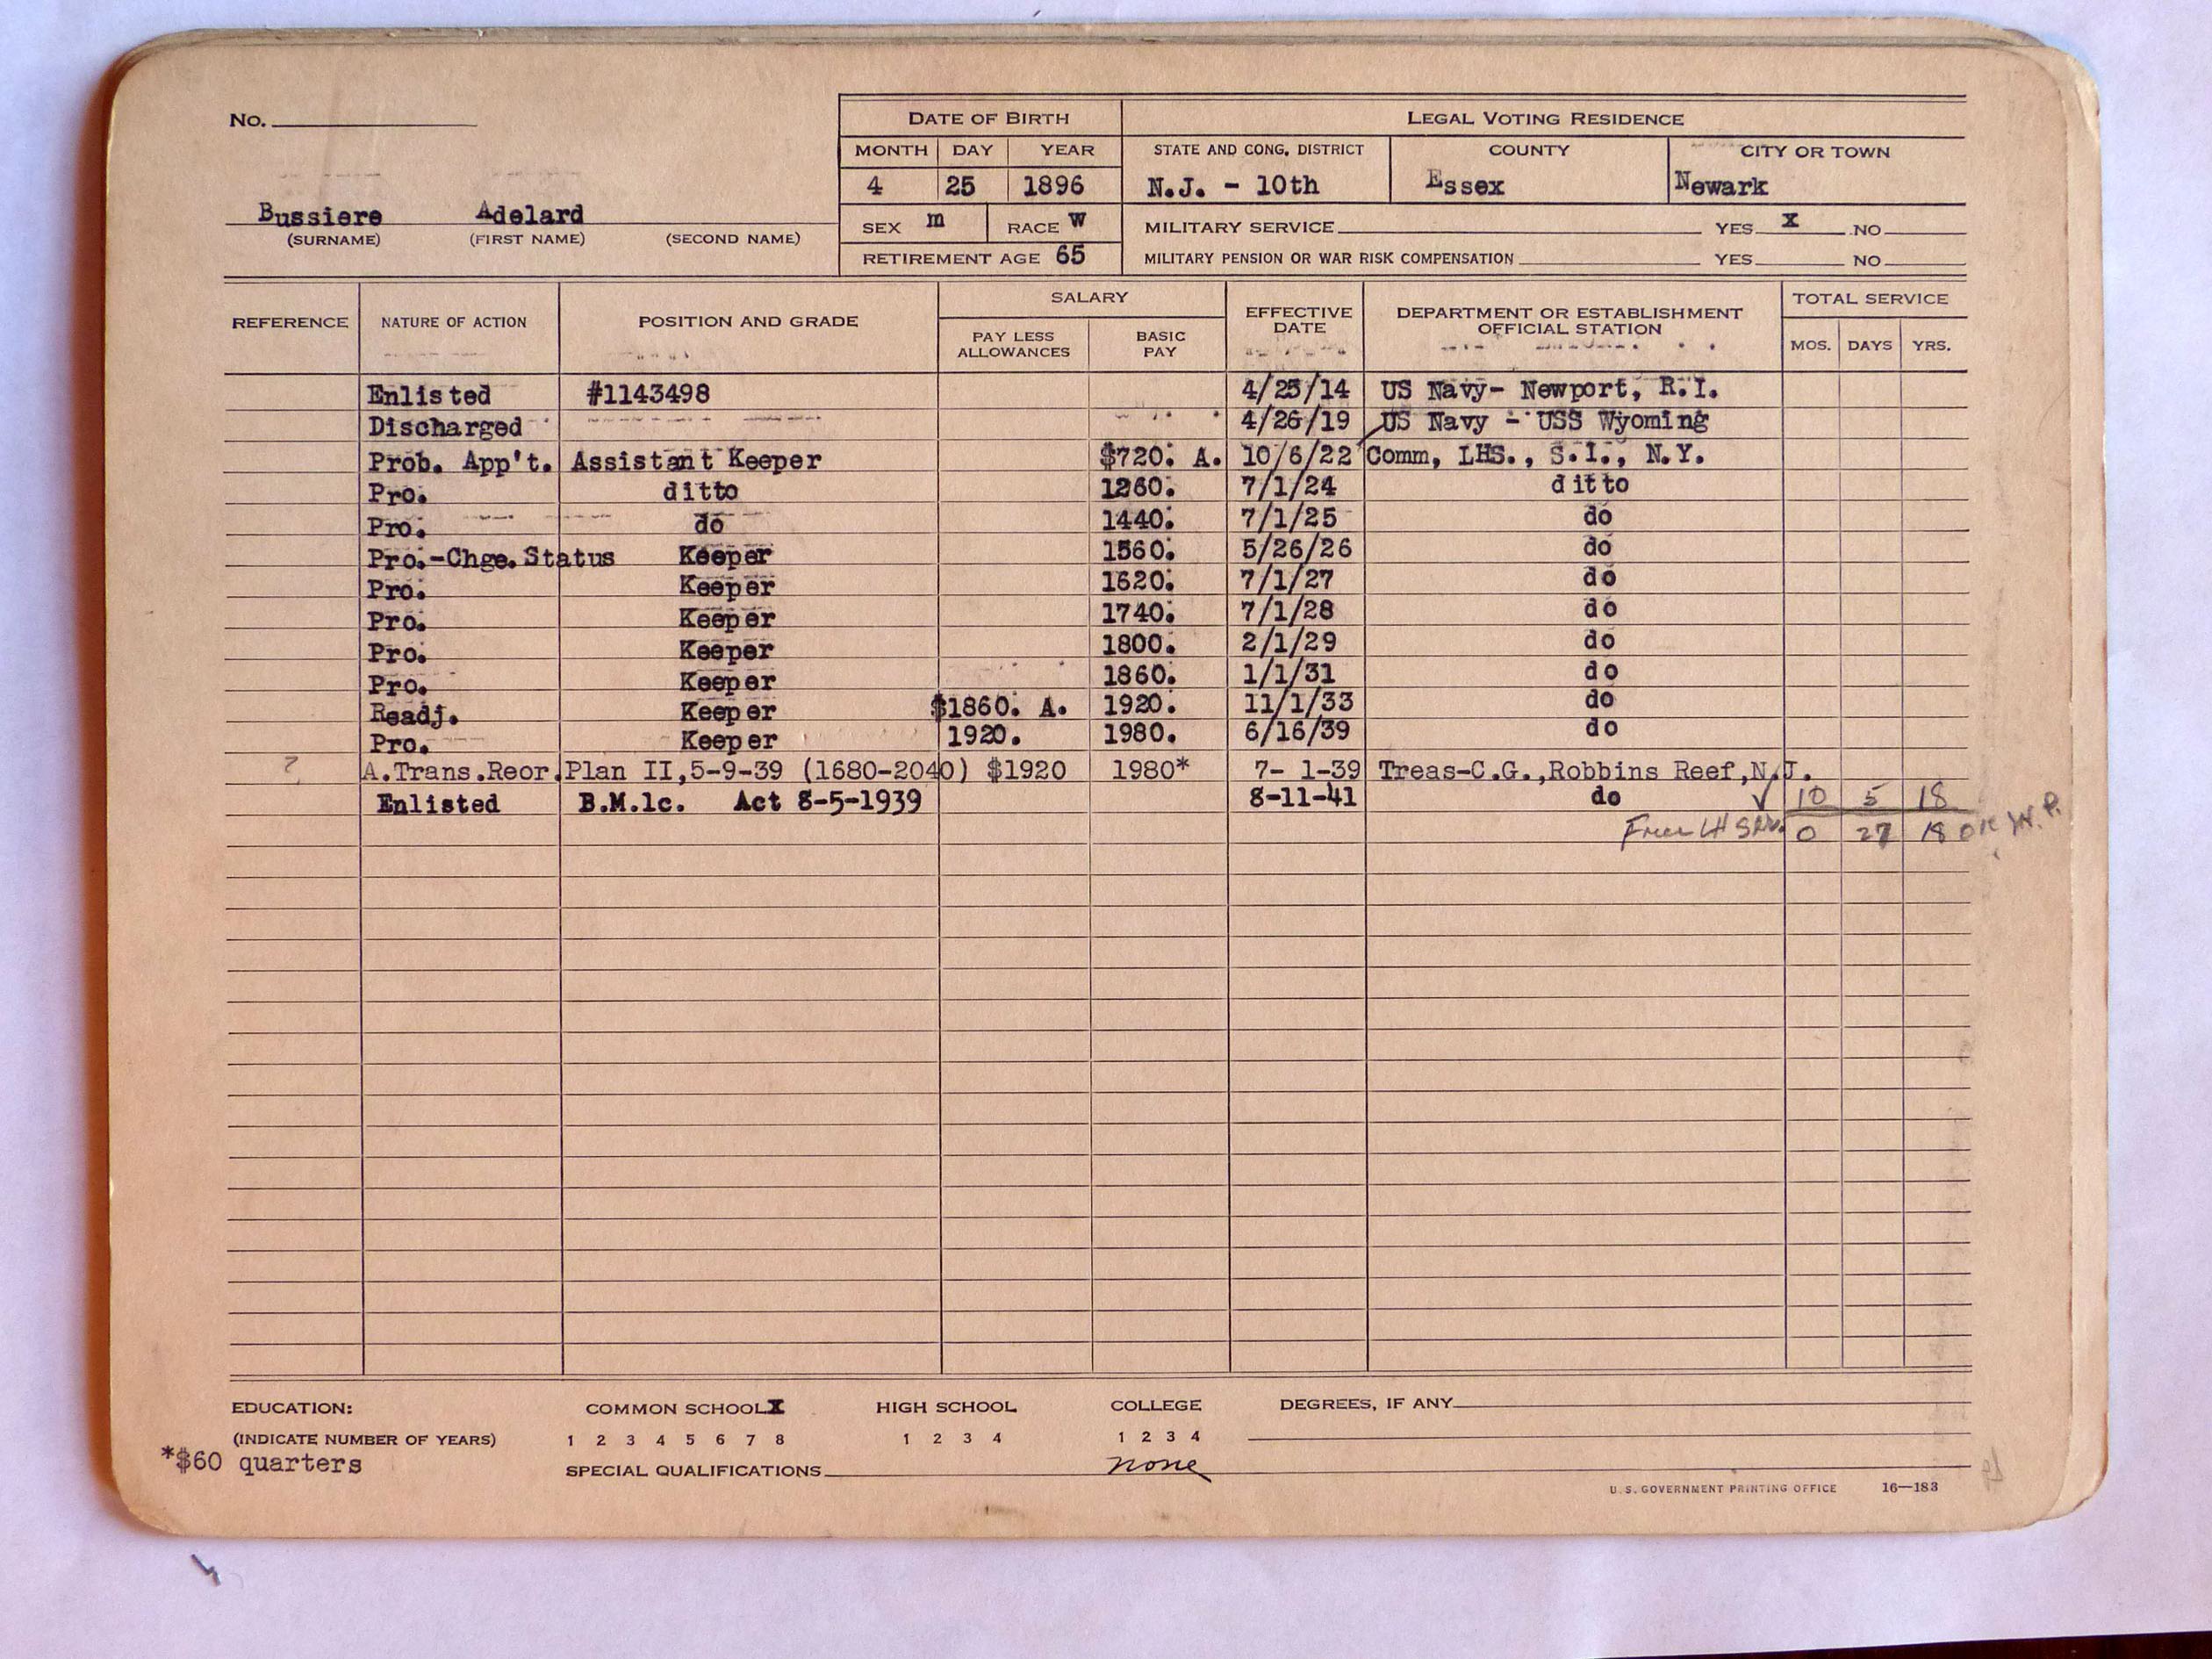 No.
DATE OF BIRTH LEGAL VOTING RESIDENCE
MONTH DAY YEAR STATE AND CONG. DISTRICT COUNTY CITY OR TOWN
4 25 1896 N.J. - 10th Essex Newark
Bussiere Adelard
(SURNAME) (FIRST NAME) (SECOND NAME)
SEX m RACE W MILITARY SERVICE YES X NO
RETIREMENT AGE 65 MILITARY PENSION OR WAR RISK COMPENSATION YES NO
REFERENCE NATURE OF ACTION POSITION AND GRADE SALARY EFFECTIVE DATE DEPARTMENT OR ESTABLISHMENT OFFICIAL STATION TOTAL SERVICE
PAY LESS ALLOWANCES BASIC PAY MOS. DAYS YRS.
Enlisted #1143498 4/25/14 US Navy- Newport, R.I.
Discharged 4/26/19 US Navy - USS Wyoming
Prob. App't. Assistant Keeper $720. A. 10/6/22 Comm, LHS., S.I., N.Y.
Pro. ditto 1260. 7/1/24 ditto
Pro. do 1440. 7/1/25 do
Pro.-Chge.Status Keeper 1560. 5/26/26 do
Pro. Keeper 1620. 7/1/27 do
Pro. Keeper 1740. 7/1/28 do
Pro. Keeper 1800. 2/1/29 do
Pro. Keeper 1860. 1/1/31 do
Readj. Keeper $1860. A. 1920. 11/1/33 do
Pro. Keeper 1920. 1980. 6/16/39 do
? A.Trans.Reor.Plan II,5-9-39 (1680-2040) $1920 1980* 7- 1-39 Treas-C.G.,Robbins Reef,N.J.
Enlisted B.M.1c. Act 8-5-1939 8-11-41 do ✓ 10 5 18
LH 0 27 18 OK
EDUCATION: COMMON SCHOOL X HIGH SCHOOL COLLEGE DEGREES, IF ANY
(INDICATE NUMBER OF YEARS) 1 2 3 4 5 6 7 8 1 2 3 4 1 2 3 4
*$60 quarters SPECIAL QUALIFICATIONS none
U.S. GOVERNMENT PRINTING OFFICE 16—183